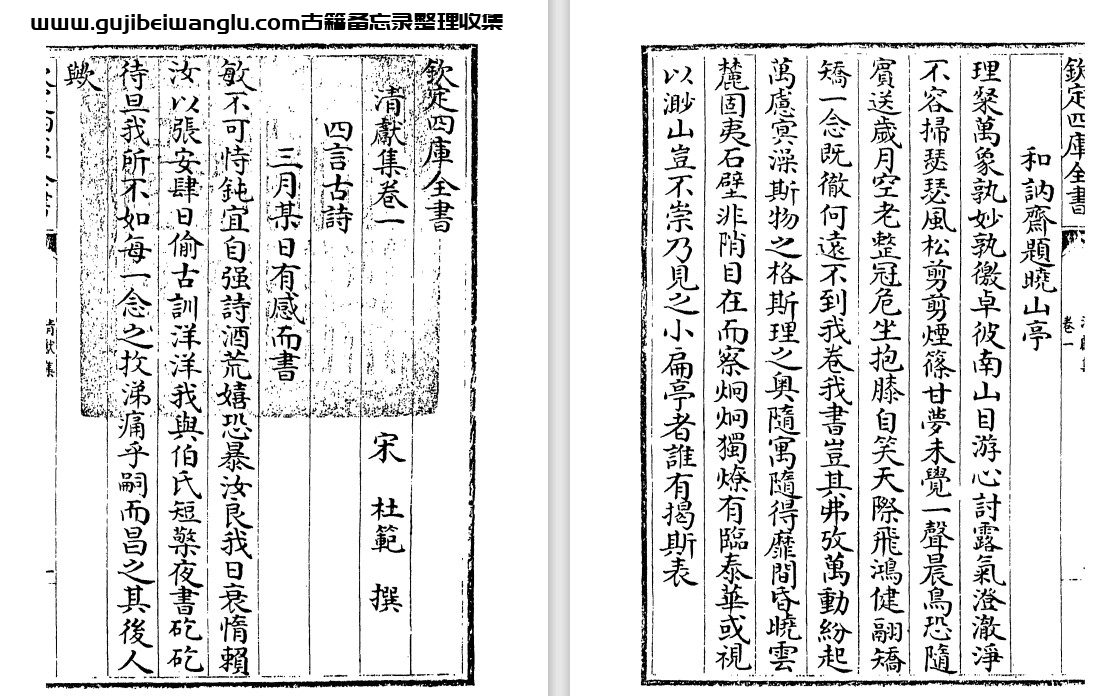 www.gujibeiwanglu.com古籍备忘录整理收集
欽定四庫全書
清獻集卷一 宋 杜範 撰
四言古詩
三月某日有感而書
敏不可恃鈍宜自强詩酒荒嬉恐暴汝良我日衰惰賴
汝以張安肆日偷古訓洋洋我與伯氏短檠夜書矻矻
待旦我所不如每一念之抆涕痛乎嗣而昌之其後人
歟
清獻集
欽定四庫全書
卷一
和訥齋題曉山亭
理粲萬象孰妙孰徼卓彼南山目游心討露氣澄澈淨
不容掃瑟瑟風松剪剪煙篠甘夢未覺一聲晨鳥恐隨
賓送歲月空老整冠危坐抱膝自笑天際飛鴻健翮矯
矯一念既徹何遠不到我卷我書豈其弗攷萬動紛起
萬慮㝠澡斯物之格斯理之奥隨寓隨得靡間昏曉雲
麓固夷石壁非陗目在而察炯炯獨燎有臨泰華或視
以渺山豈不崇乃見之小扁亭者誰有揭斯表